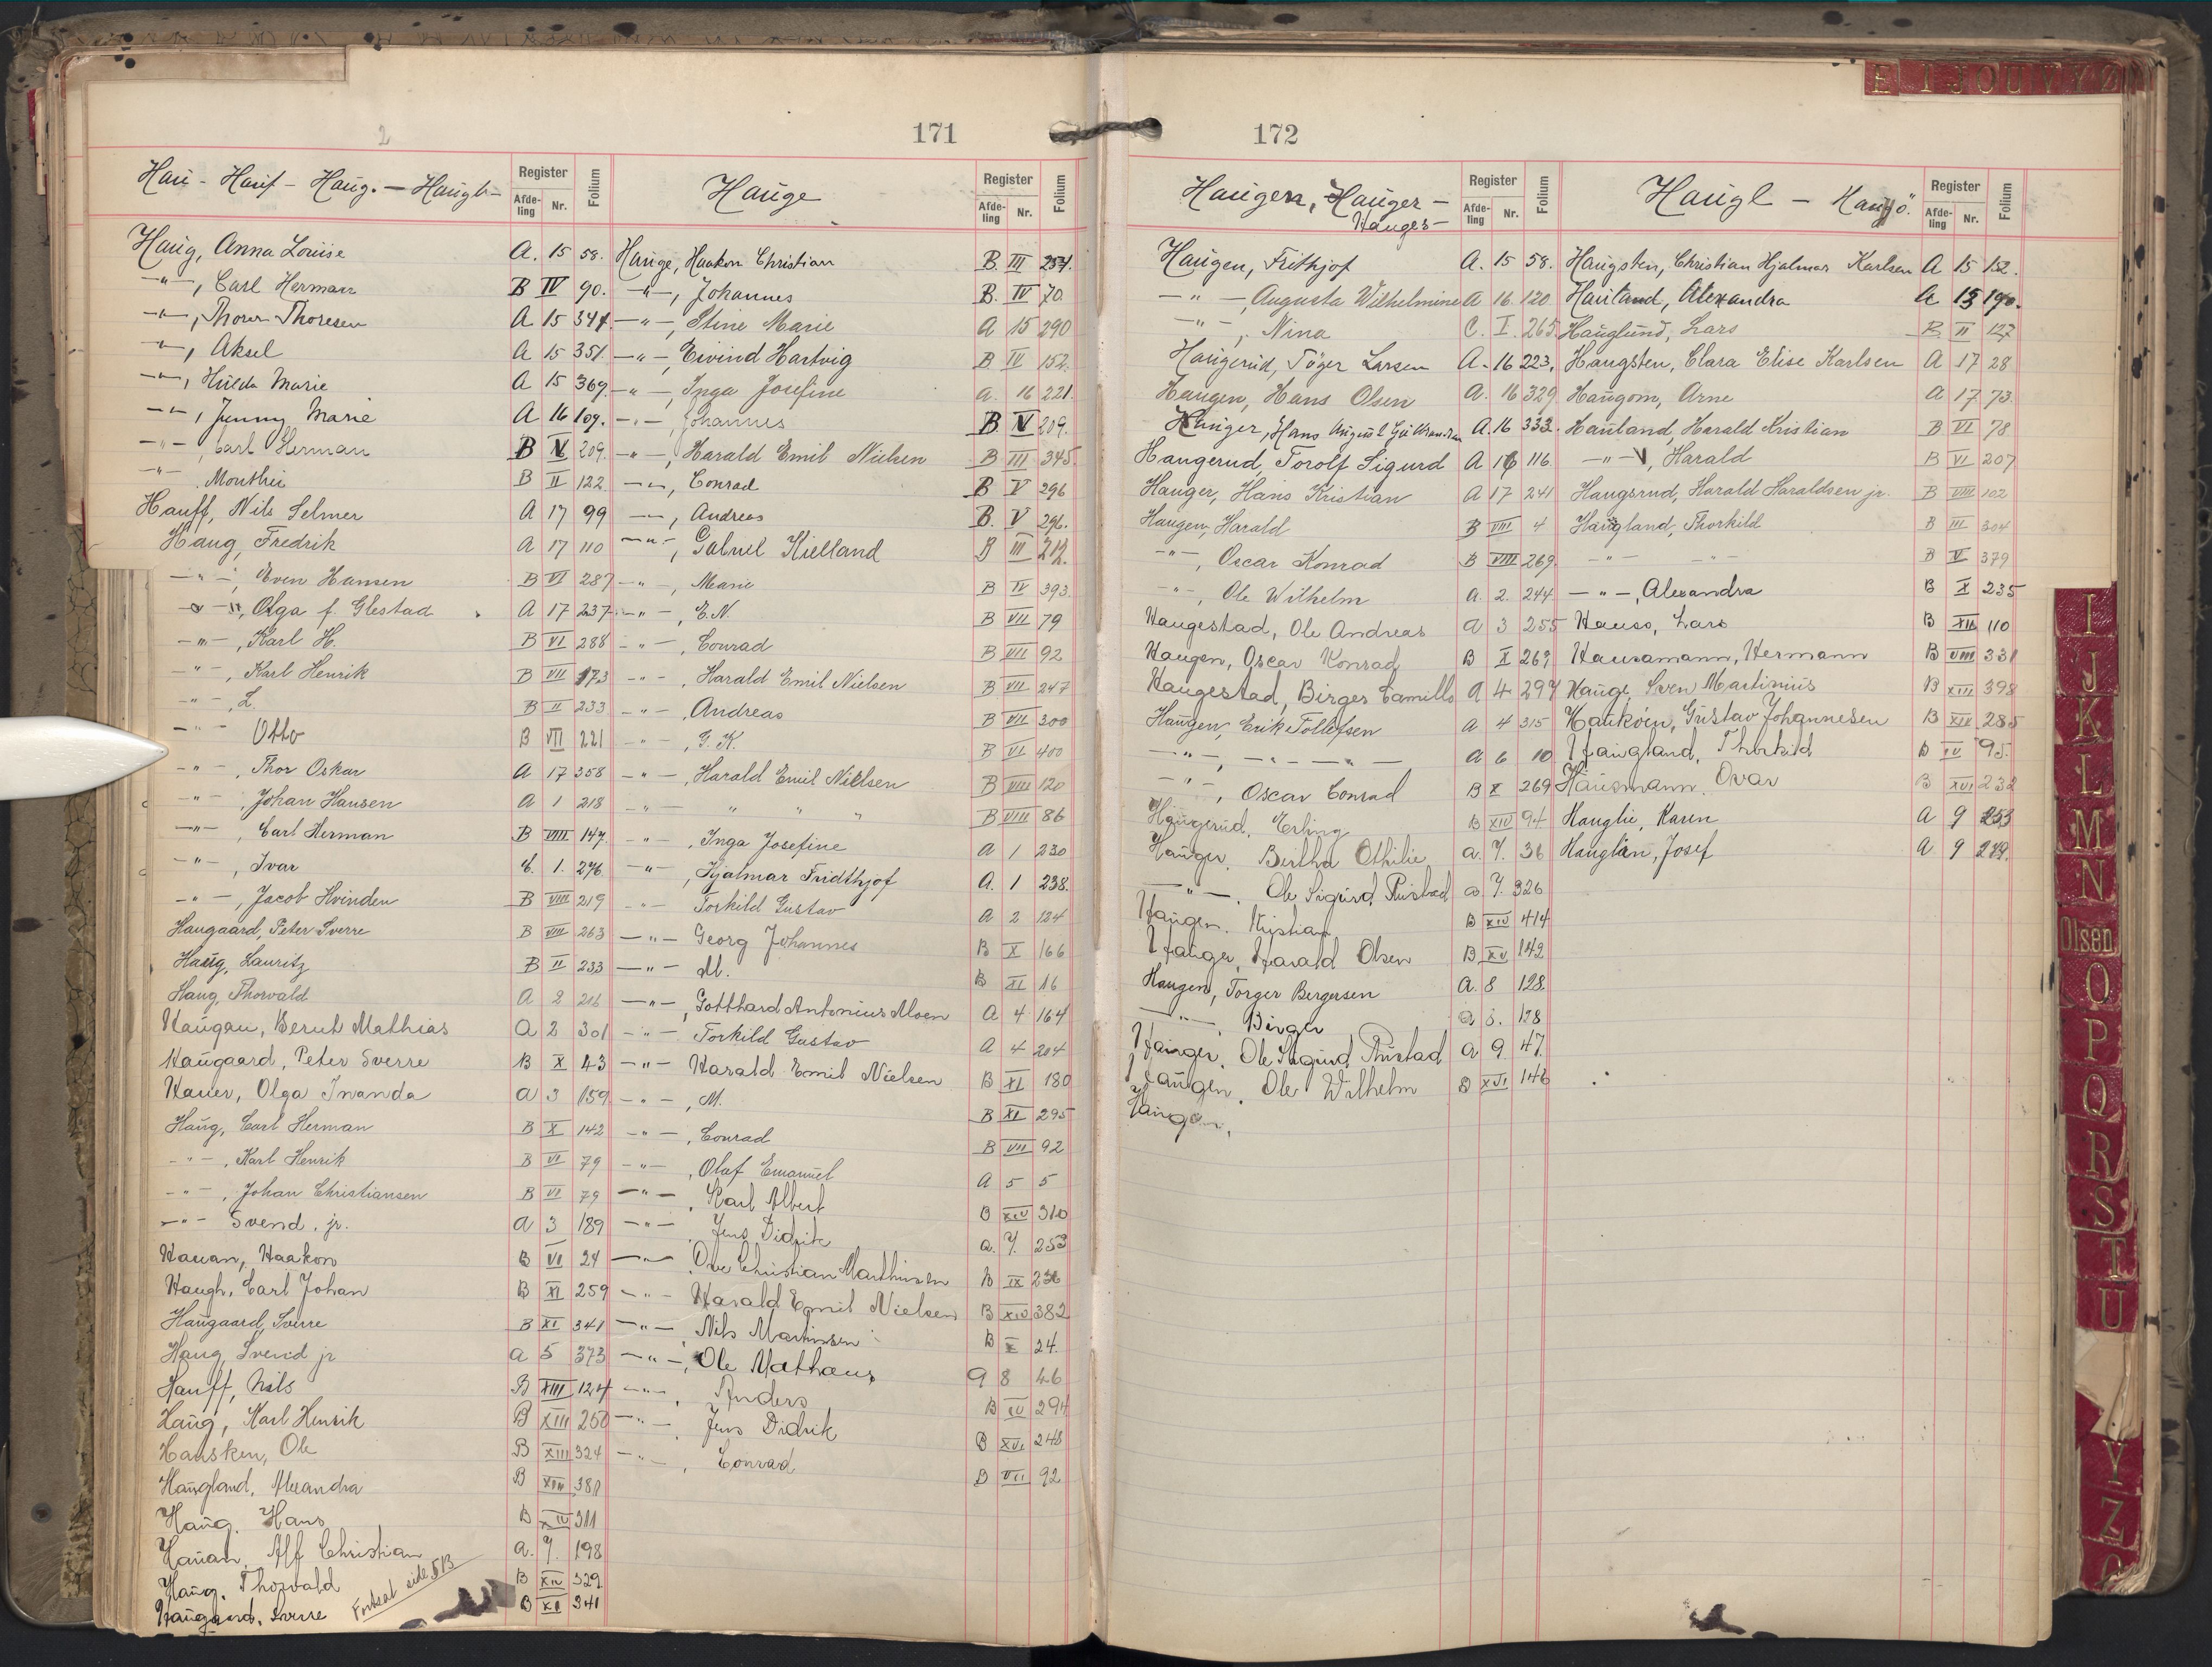 2
171
Hau - Hauf - Haug. - Haugl-
Register
Afde-
ling
Nr.
Folium
Haug, Anna Louise A. 15 58.
-"-, Carl Herman B IV 90.
-"-, Thorer Thoresen A 15 344.
-"-, Aksel A 15 351.
-"-, Hulda Marie A 15 369.
-"-, Jenny Marie A 16 109.
-"-, Carl Herman B V 209.
-"- B II 122
Hauff, Nils Selmer A 17 99
Haug, Fredrik A 17 110
-"-, Even Hansen B VI 287
-"-, Olga f. Glestad A 17 237
-"-, Karl H. B VI 288
-"-, Karl Henrik B VII 173
-"-, L. B II 233
-"- Otto B VII 221
-"-, Thor Oskar A 17 358
-"-, Johan Hansen A 1 218
-"-, Carl Herman B VIII 147.
-"-, Ivar 1. 276
-"-, Jacob Hvinden B VIII 219
Haugaard, Peter Sverre B VIII 263
Haug, Lauritz B II 233
Haug, Thorvald A 2 216
Haugan, Bernt Mathias A 2 301
Haugaard, Peter Sverre B X 43
Hauer, Olga Inanda A 3 159
Haug, Carl Herman B X 142
-"-, Karl Henrik B VI 79
-"-, Johan Christiansen B VI 79
-"- Svend, jr. A 3 189
Hauan, Haakon B VI 24
Haugh, Carl Johan B XI 259
Haugaard, Sverre B XI 341
Haug, Svend jr A 5 373
Hauff, Nils B XIII 124
Haug, Karl Henrik B XIII 250
Hausken, Ole B XIII 324
Haugland, Alexandra B XIII 381
Haug. Hans B XIV 311
Hauan, Alf Christian A. 7. 198
Haug. Thorvald B XIV 329
Haugaard, Sverre B XI 341
Fortsat side 513
Hauge
Register
Afde-
ling
Nr.
Folium
Hauge, Haakon Christian B. III 254.
-"-, Johannes B. IV 70
-"-, Stine Marie A 15 290
-"-, Eivind Hartvig B IV 152.
-"-, Inga Josefine A. 16 221.
-"-, Johannes B V 209.
-"-, Harald Emil Nielsen B III 345
-"-, Conrad B V 296
-"-, Andreas B. V 296.
-"-, Gabriel Kielland B III 212.
-"-, Marie B IV 393
-"-, E.N. B VII 79
-"-, Conrad B VII 92
-"-, Harald Emil Nielsen B VII 247
-"-, Andreas B VII 300
-"-, G. K. B VI 400
-"-, Harald Emil Nielsen B VIII 120
-"- " " B VIII 86
-"-, Inga Josefine A 1 230
-"-, Hjalmar Fridthjof A. 1 238.
-"- Torkild Gustav A 2 124
-"- Georg Johannes B X 166
-"- M. B XI 16
-"-, Gotthard Antonius Moen A 4 164
-"- Torkild Gustav A 4 204
-"- Harald Emil Nielsen B XI 180
-"-, M. B XI 295
-"-, Conrad B VII 92
-"-, Olaf Emanuel A 5 5
-"-, Karl Albert B XIV 310
-"-, Jens Didrik A. 7. 253
-"- Ove Christian Marthinsen B IX 236
-"- Harald Emil Nielsen B XIV 382
-"-, Nils Martinsen B X 24.
-"-, Ole Mathaus A 8 46
-"-, Anders B XV 294
-"-, Jens Didrik B XVI 248
-"-, Conrad B VII 92
172
Haugen, Hauger -
Hauges -
Register
Afde-
ling
Nr.
Folium
Haugen, Frithjof A. 15 58.
-"-, Augusta Wilhelmine A 16 120
-"-, Nina C. I. 265
Haugerud, Töger Larsen A. 16 223.
Haugen, Hans Olsen A. 16 329
Hauger, Hans August A. 16 333.
Haugerud, Torolf Sigurd A 16 116
Hauger, Hans Kristian A 17 241
Haugen, Harald B VIII 4
-"-, Oscar Konrad B VIII 269.
-"-, Ole Wilhelm A. 2. 244
Haugestad, Ole Andreas A 3 255
Haugen, Oscar Konrad B X 269
Haugestad, Birger Camillo A 4 297
Haugen, Erik Tollefsen A 4 315
-"-, -"- -"- A 6 10
-"-, Oscar Conrad B X 269
Haugerud, Erling B XIV 94
Hauger. Bertha Othilie A. 7. 36
-"-. Ole Sigurd Rustad A 7. 326
Haugen. Kristian B XIV 414
Hauger, Harald Olsen B XV 142
Haugen, Torger Bergersen A. 8 128.
-"-. Birger A 8. 128
Hauger. Ole Sigurd Rustad A 9. 47.
Haugen. Ole Wilhelm B XVI 146
Haugen.
Haugl - Haugö.
Register
Afde-
ling
Nr.
Folium
Haugsten, Christian Hjalmar Karlsen A 15 152.
Hauland, Alexandra A 15 190.
Hauglund, Lars B. II 127
Haugsten, Clara Elise Karlsen A 17 28
Haugom, Arne A 17 73.
Hauland, Harald Kristian B VI 78
-"-, Harald B VI 207
Haugsrud, Harald Haraldsen jr. B VIII 102
Haugland, Thorkild B III 304
-"- -"- B V 379
-"-, Alexandra B X 235
Hauso, Lars B XII 110
Hausamann, Hermann B VIII 331
Hauge, Sven Martinius B XIII 398
Haukoin, Gustav Johannesen B XIV 285
Haugland, Thorkild B IV 95.
Hausmann. Ovar B XVI 232
Hauglie, Karen A 9 253
Hauglän, Josef A. 9 279.
E I J O U V Y Z
I
J
K
L
M
N
Olsen
O
P
Q
R
S
T
U
Y
Z